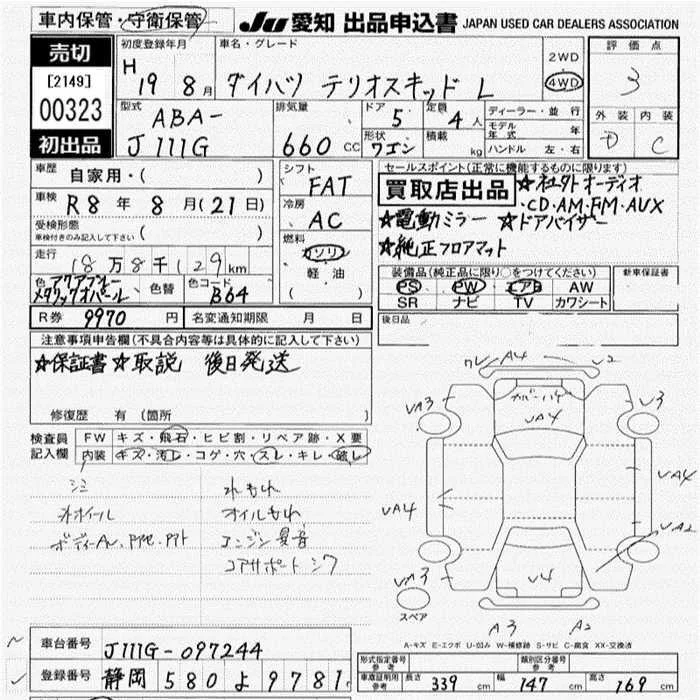 車内保管・守衛保管
JU 愛知 出品申込書 JAPAN USED CAR DEALERS ASSOCIATION
売切
[2149]
00323
初出品
初度登録年月
H 19 8月
車名・グレード
ダイハツ テリオスキッド L
2WD
4WD
評価点
3
外装 内装
D C
型式
ABA-
J111G
排気量
660 cc
ドア
5
定員
4人
形状
ワゴン
積載
kg
ディーラー・並行
モデル年式 年
ハンドル 左・右
車歴
自家用・( )
車検
R8年 8月(21日)
受検形態
車検付きのみ記入して下さい ( )
走行
18万8千129km
色 アクアブルー
メタリックオパール
色替
色コード
B64
シフト
FAT
冷房
AC
燃料
ガソリン
軽油
( )
R券 9970円
名変通知期限 月 日
セールスポイント(正常に機能するものに限ります)
買取店出品
☆社外オーディオ
・CD・AM・FM・AUX
☆電動ミラー ☆ドアバイザー
☆純正フロアマット
装備品(純正品に限り○をつけてください)
PS PW エアB AW
SR ナビ TV カワシート
新車保証書
後日品
注意事項申告欄(不具合内容等は具体的に記入して下さい)
☆保証書☆取説 後日発送
修復歴 有(箇所 )
検査員記入欄
FW キズ・飛石・ヒビ割・リペア跡・X要
内装 キズ・汚レ・コゲ・穴・スレ・キレ・破レ
シミ
外ホイール
水もれ
オイルもれ
エンジン異音
コアサポートシワ
A4
V2
VA3
VA4
V3
VA4
VA4
VA2
VA3
V4
スペア
A3
A2
A-キズ E-エクボ U-凹み W-補修跡 S-サビ C-腐食 XX-交換済
車台番号
J111G-097244
登録番号
静岡 580 よ 9781
型式指定番号
参考
類別区分番号
参考
車庫証明用
参考
長さ 339cm
幅 147cm
高さ 169cm